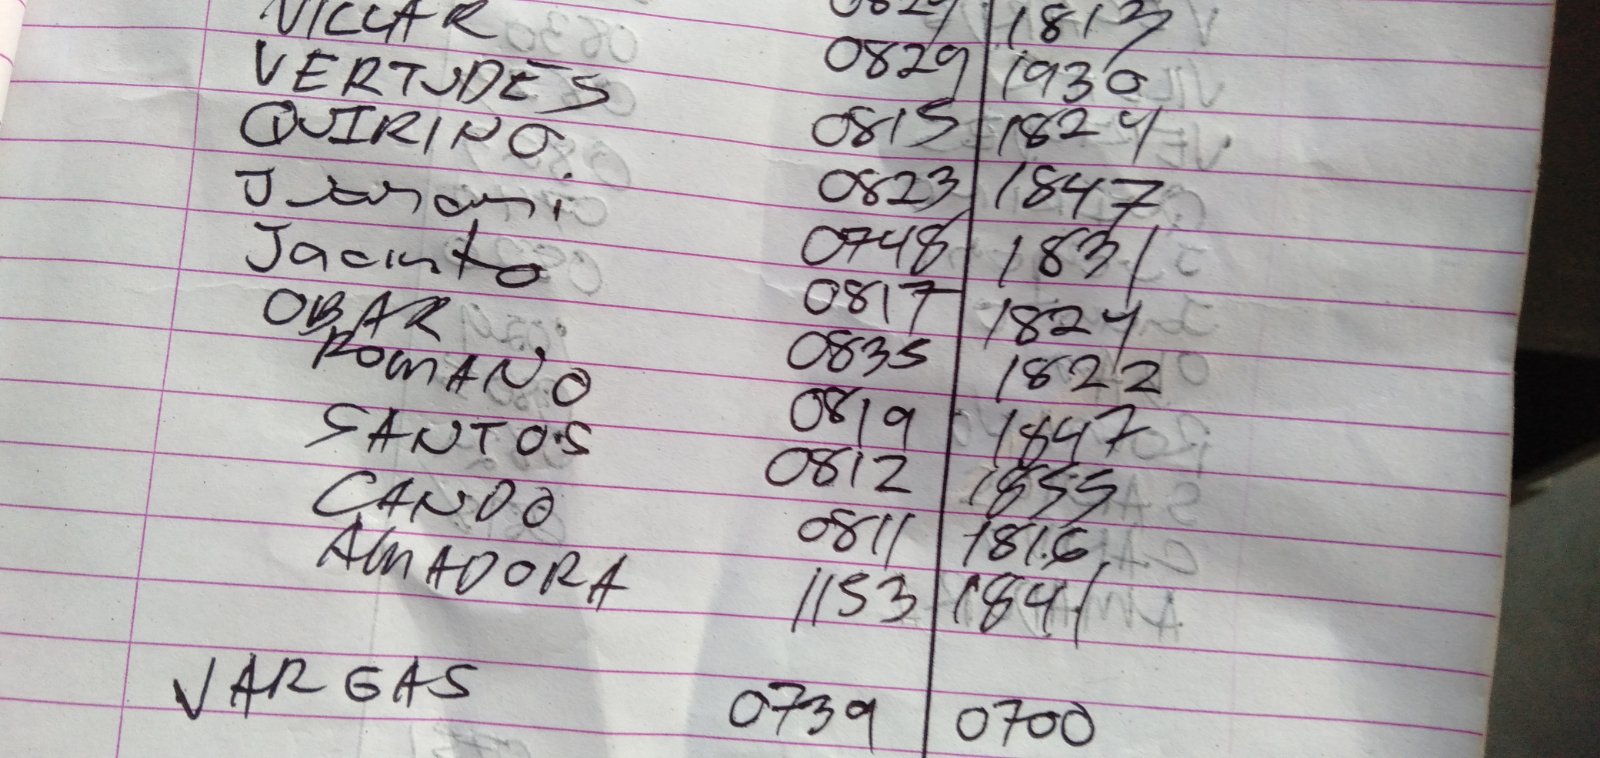 VILLAR 0829 1813
VERTUDES 0829 1930
QUIRINO 0815 1824
0823 1847
Jacinto 0748 1831
OBAR 0817 1824
ROMANO 0835 1822
SANTOS 0819 1847
CANDO 0812 1855
AMADORA 0811 1816
1153 1841
VARGAS 0739 0700